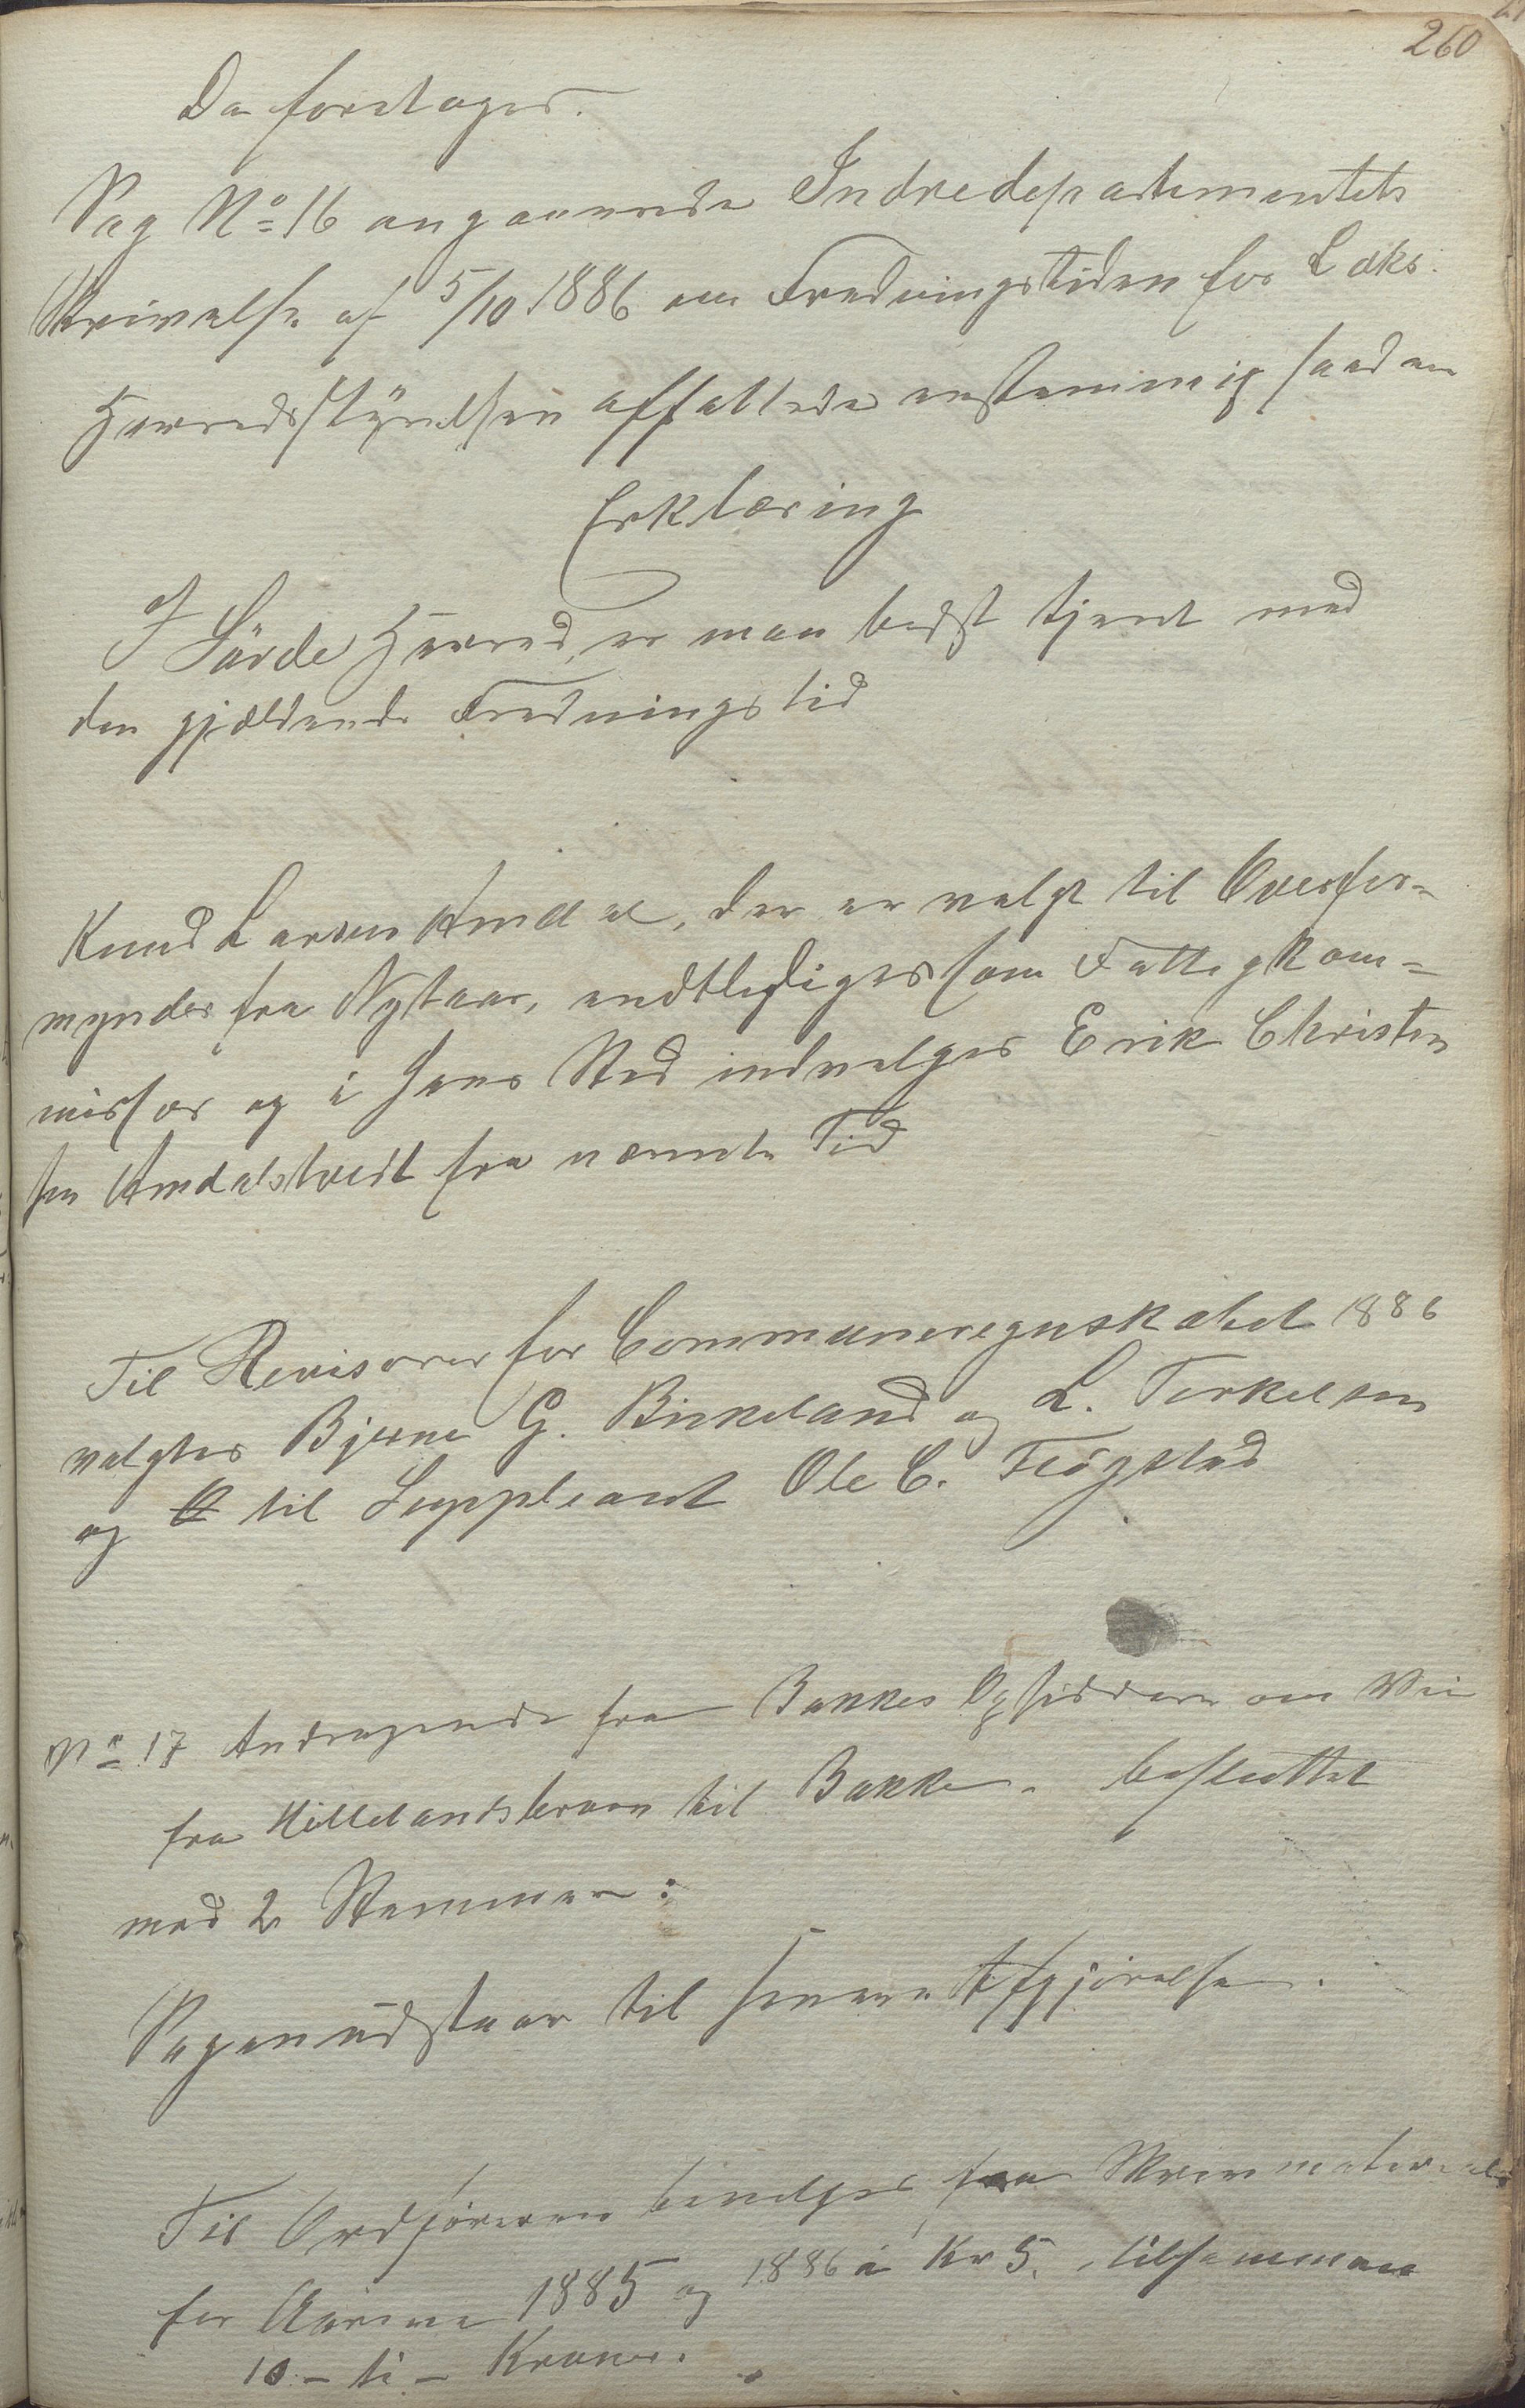 260
Da foretages.
Sag No 16 angaaende Indredepartementets
Skrivelse af 5/10 1886 om Fredningstiden for Laks.
Herredsstyrelsen affattede enstemmig saadan
Erklæring
I Søvde Herred, er man bedst tjent med
den gjældende Fredningstid
Knud Larsen Amdal, der er valgt til Overfor-
mynder fra Nytaar, endtlediges som Fattigkom-
missær og i hans Sted indvælges Erik Christen
sen Amdalstvedt fra nævnte Tid
Til Revisorer for Communeregnskabet 1886
valgtes Bjerne G. Birkeland og L. Torkelsen
og til Suppleant Ole C. Trøgstad
No 17 Andragende fra Bakkes Opsiddere om Vei
fra Hillelandsbroen til Bakke. besluttet
mod 2 Stemmer:
Sagen udstaar til senere Afgjørelse.
Til Ordføreren bevilges for Skrivmaterialer
for Aarene 1885 og 1886 à Kr 5. tilsammen
10 - ti - Kroner.